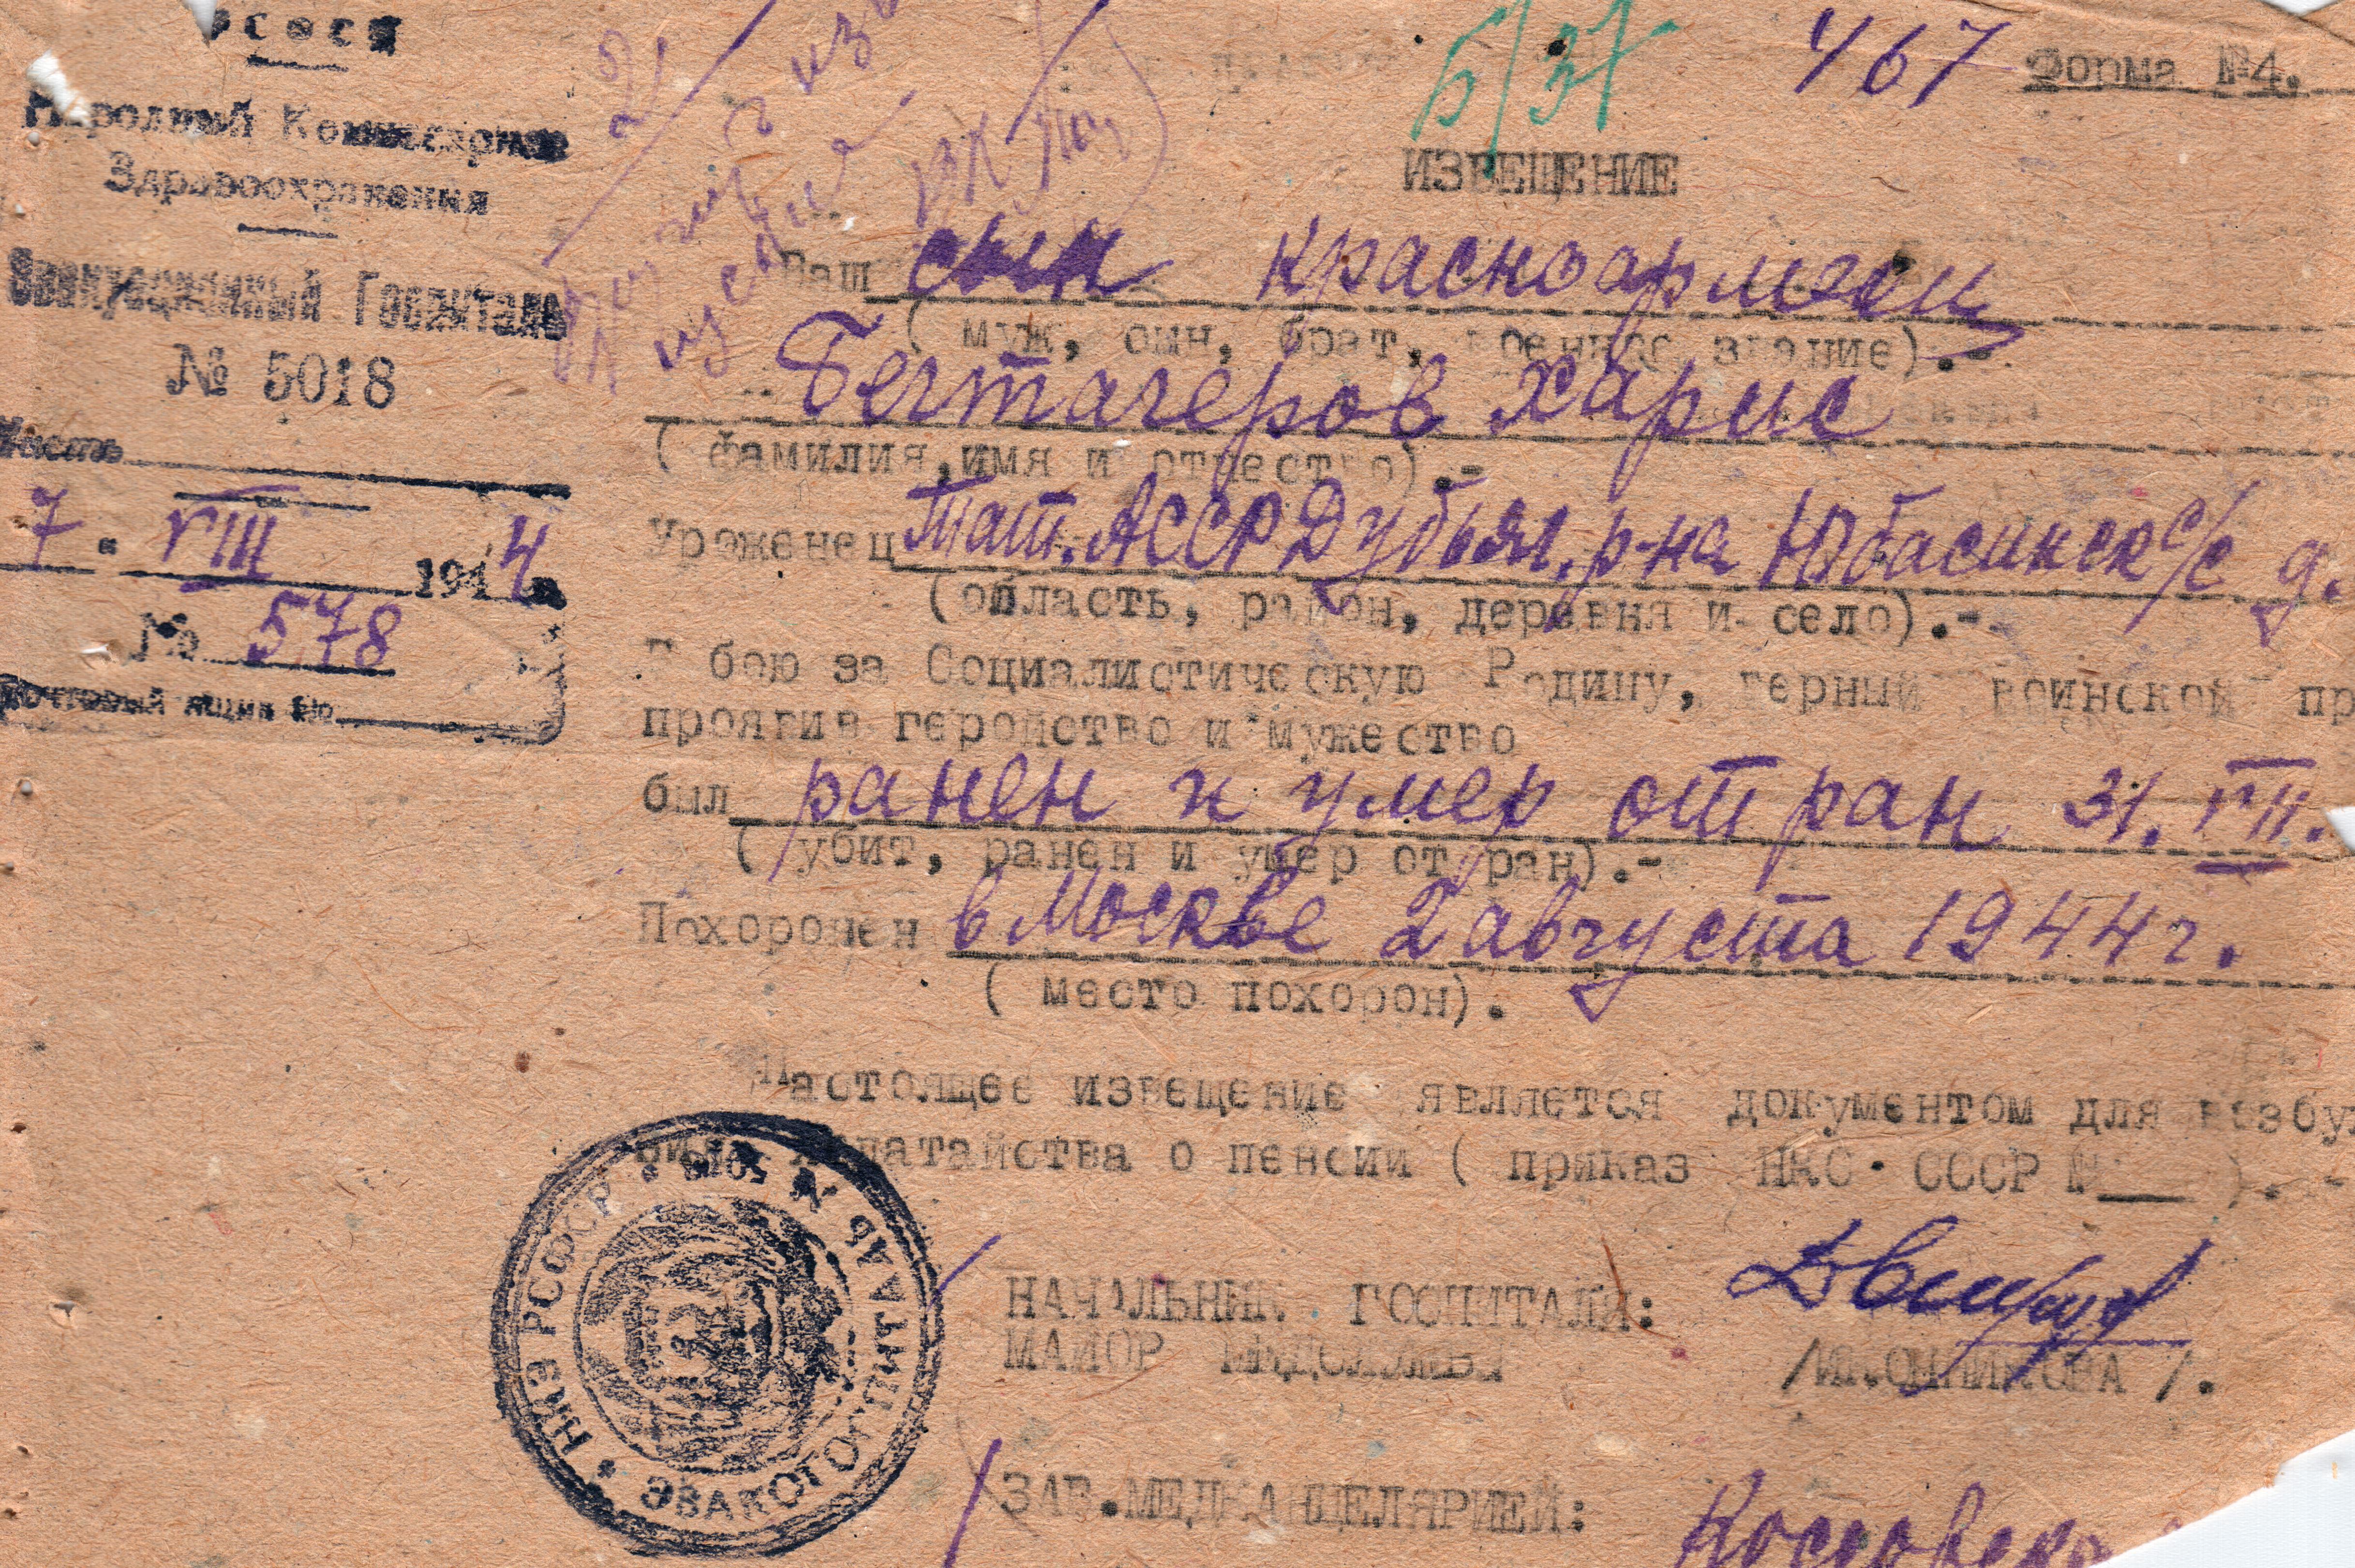 Народный Комиссариат
Здравоохранения
Эвакуационный Госпиталь
№ 5018
Часть
7 " VIII 1944 г.
№ 578
Почтовый ящик №
Б/37
467 Форма №4.
ИЗВЕЩЕНИЕ
Ваш сын красноармеец
( муж, сын, брат, военное звание).-
Бегтагеров Харис
( фамилия, имя и отчество).-
Уроженец Тат. АССР Дубъяз. р-на Юбасинск с/с д.
(область, район, деревня и село).-
В бою за Социалистическую Родину, верный воинской пр
проявив геройство и мужество
был ранен и умер от ран 31. VII.
( убит, ранен и умер от ран).-
Похоронен в Москве 2 августа 1944г.
( место похорон).
Настоящее извещение является документом для возбу
ходатайства о пенсии ( приказ НКО СССР №___ ).-
НАЧАЛЬНИК ГОСПИТАЛЯ:
МАЙОР МЕДСЛУЖБЫ
ЗАВ.МЕДКАНЦЕЛЯРИЕЙ:
НКЗ РСФСР * ЭВАКОГОСПИТАЛЬ № 5018